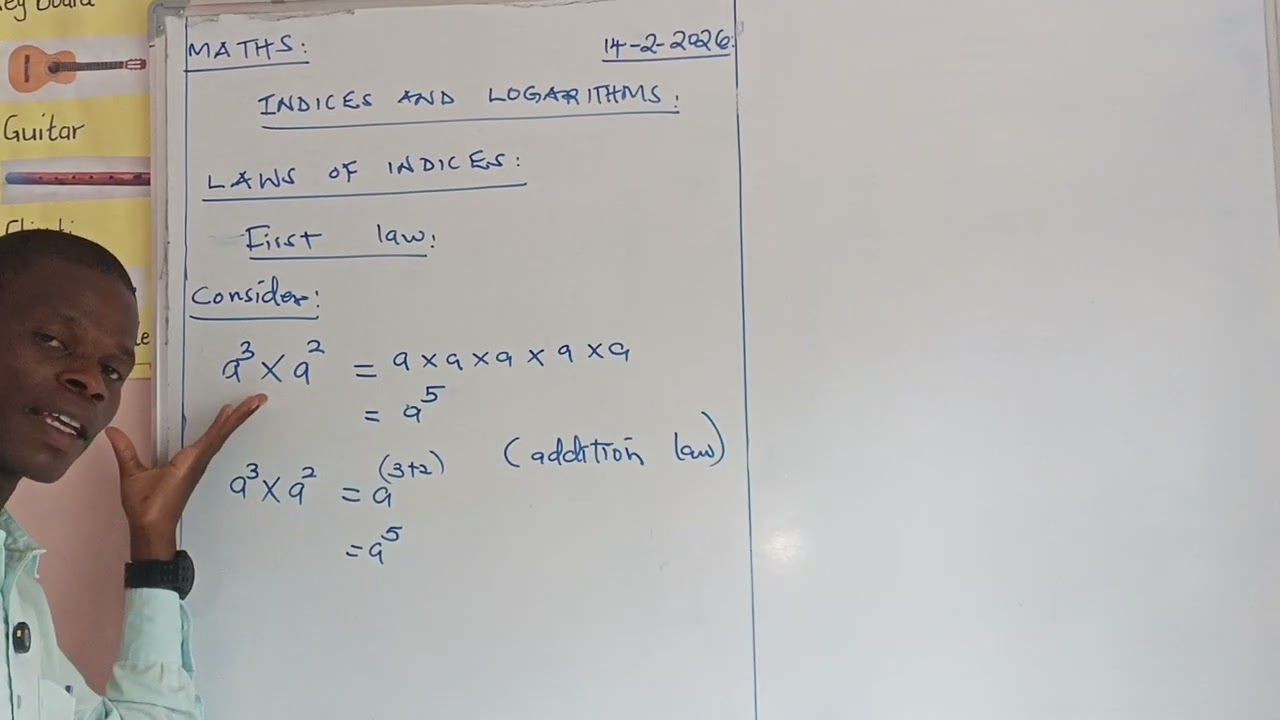 ey board
Guitar
le
MATHS: 14-2-2026:
INDICES AND LOGARITHMS:
LAWS OF INDICES:
First law:
Consider:
a³ × a² = a × a × a × a × a
= a⁵
a³ × a² = a⁽³⁺²⁾ (addition law)
= a⁵